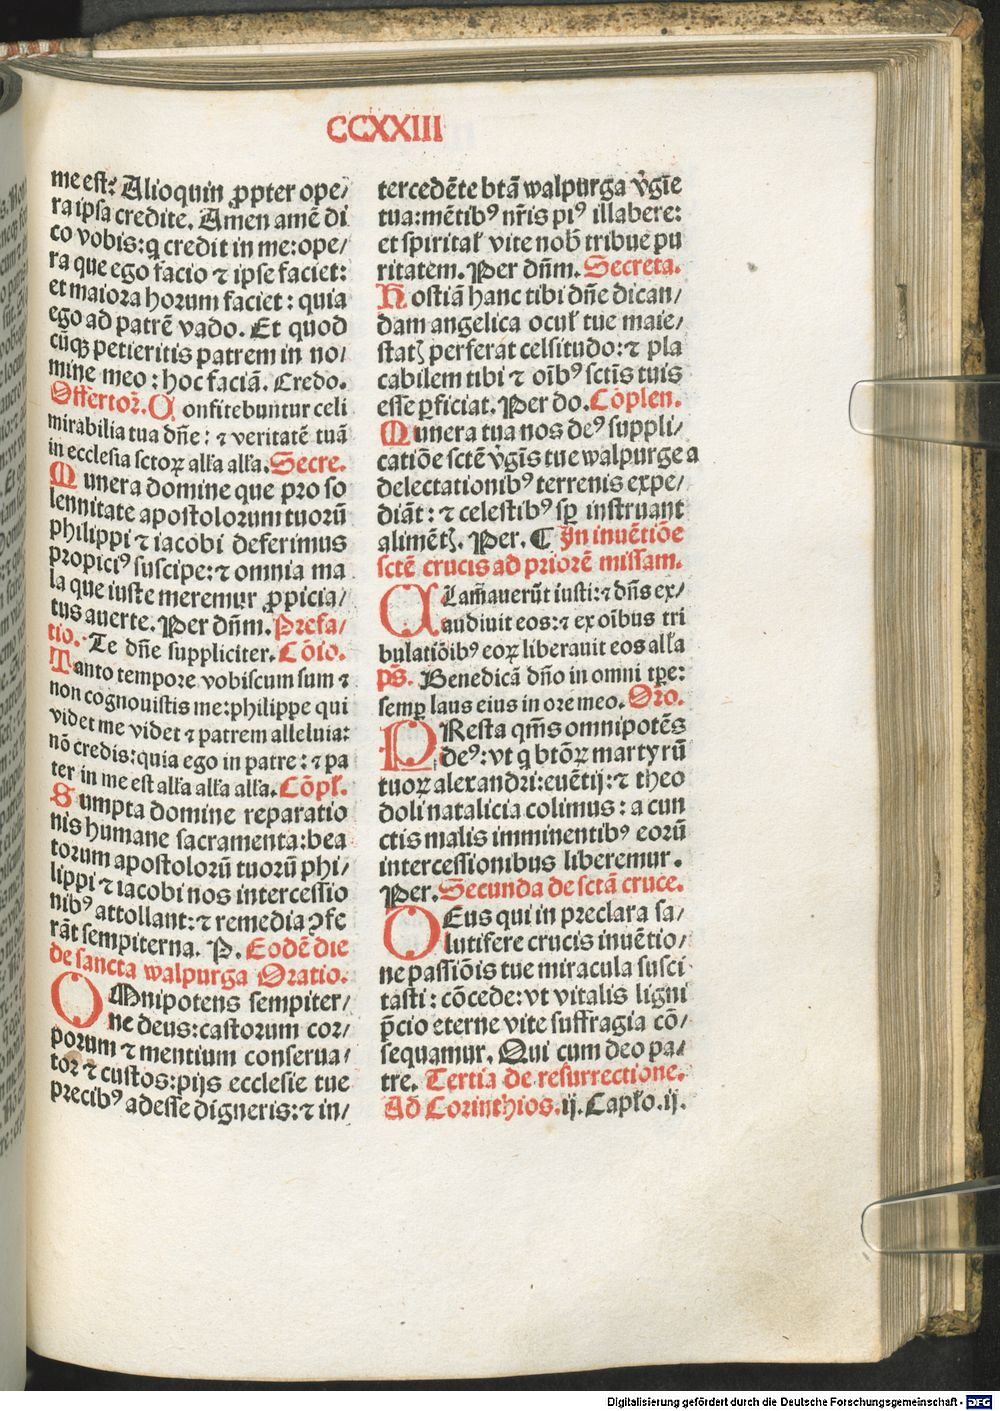 CCXXIII
me est? Alioquin ꝓpter ope/
ra ipsa credite. Amen amē di
co vobis: q̄ credit in me: ope/
ra que ego facio ⁊ ipse faciet:
et maiora horum faciet: quia
ego ad patrē vado. Et quod
cūqꝫ petieritis patrem in no/
mine meo: hoc faciā. Credo.
Offertoꝝ. Confitebuntur celi
mirabilia tua dñe: ⁊ veritatē tuā
in ecclesia sctoꝝ alľa alľa. Secre.
Munera domine que pro so
lennitate apostolorum tuorū
philippi ⁊ iacobi deferimus
propiciꝰ suscipe: ⁊ omnia ma
la que iuste meremur ꝓpicia/
tus auerte. Per dñm. Prefa/
tio. Te dñe suppliciter. Cōio.
Tanto tempore vobiscum sum ⁊
non cognouistis me: philippe qui
videt me videt ⁊ patrem alleluia:
nō credis: quia ego in patre: ⁊ pa
ter in me est alľa alľa alľa. Cōpľ.
Sumpta domine reparatio
nis humane sacramenta: bea
torum apostolorū tuorū phi/
lippi ⁊ iacobi nos intercessio
nibꝰ attollant: ⁊ remedia ꝯfe
rāt sempiterna. P. Eodē die
de sancta walpurga Oratio.
OMnipotens sempiter/
ne deus: castorum cor/
porum ⁊ mentium conserua/
tor ⁊ custos: pijs ecclesie tue
precibꝰ adesse digneris: ⁊ in/
tercedēte btā walpurga v̓gīe
tua: mētibꝰ nr̄is piꝰ illabere:
et spiritaľ vite nob̄ tribue pu
ritatem. Per dñm. Secreta.
Hostiā hanc tibi dñe dican/
dam angelica oculꝉ tue maie/
statꝭ perferat celsitudo: ⁊ pla
cabilem tibi ⁊ oībꝰ sctīs tuis
esse ꝑficiat. Per do. Cōplen.
Munera tua nos deꝰ suppli/
catiōe sctē v̓gīs tue walpurge a
delectationibꝰ terrenis expe/
diāt: ⁊ celestibꝰ sꝑ instruant
alimētꝭ. Per. ¶ In inuētiōe
sctē crucis ad priorē missam.
CLamauerūt iusti: ⁊ dñs ex/
audiuit eos: ⁊ ex oībus tri
bulatiōibꝰ eoꝝ liberauit eos alľa
p̄s. Benedicā dño in omni tꝑe:
semꝑ laus eius in ore meo. Oro.
PResta qm̄s omnipotēs
deꝰ: vt q̄ btōꝝ martyrū
tuoꝝ alexandri: euētij: ⁊ theo
doli natalicia colimus: a cun
ctis malis imminentibꝰ eorū
intercessionibus liberemur.
Per. Secunda de sctā cruce.
DEus qui in preclara sa/
lutifere crucis inuētio/
ne passiōis tue miracula susci
tasti: cōcede: vt vitalis ligni
p̄cio eterne vite suffragia cō/
sequamur. Qui cum deo pa/
tre. Tertia de resurrectione.
Ad Corinthios. ij. Capľo. ij.
Digitalisierung gefördert durch die Deutsche Forschungsgemeinschaft - DFG